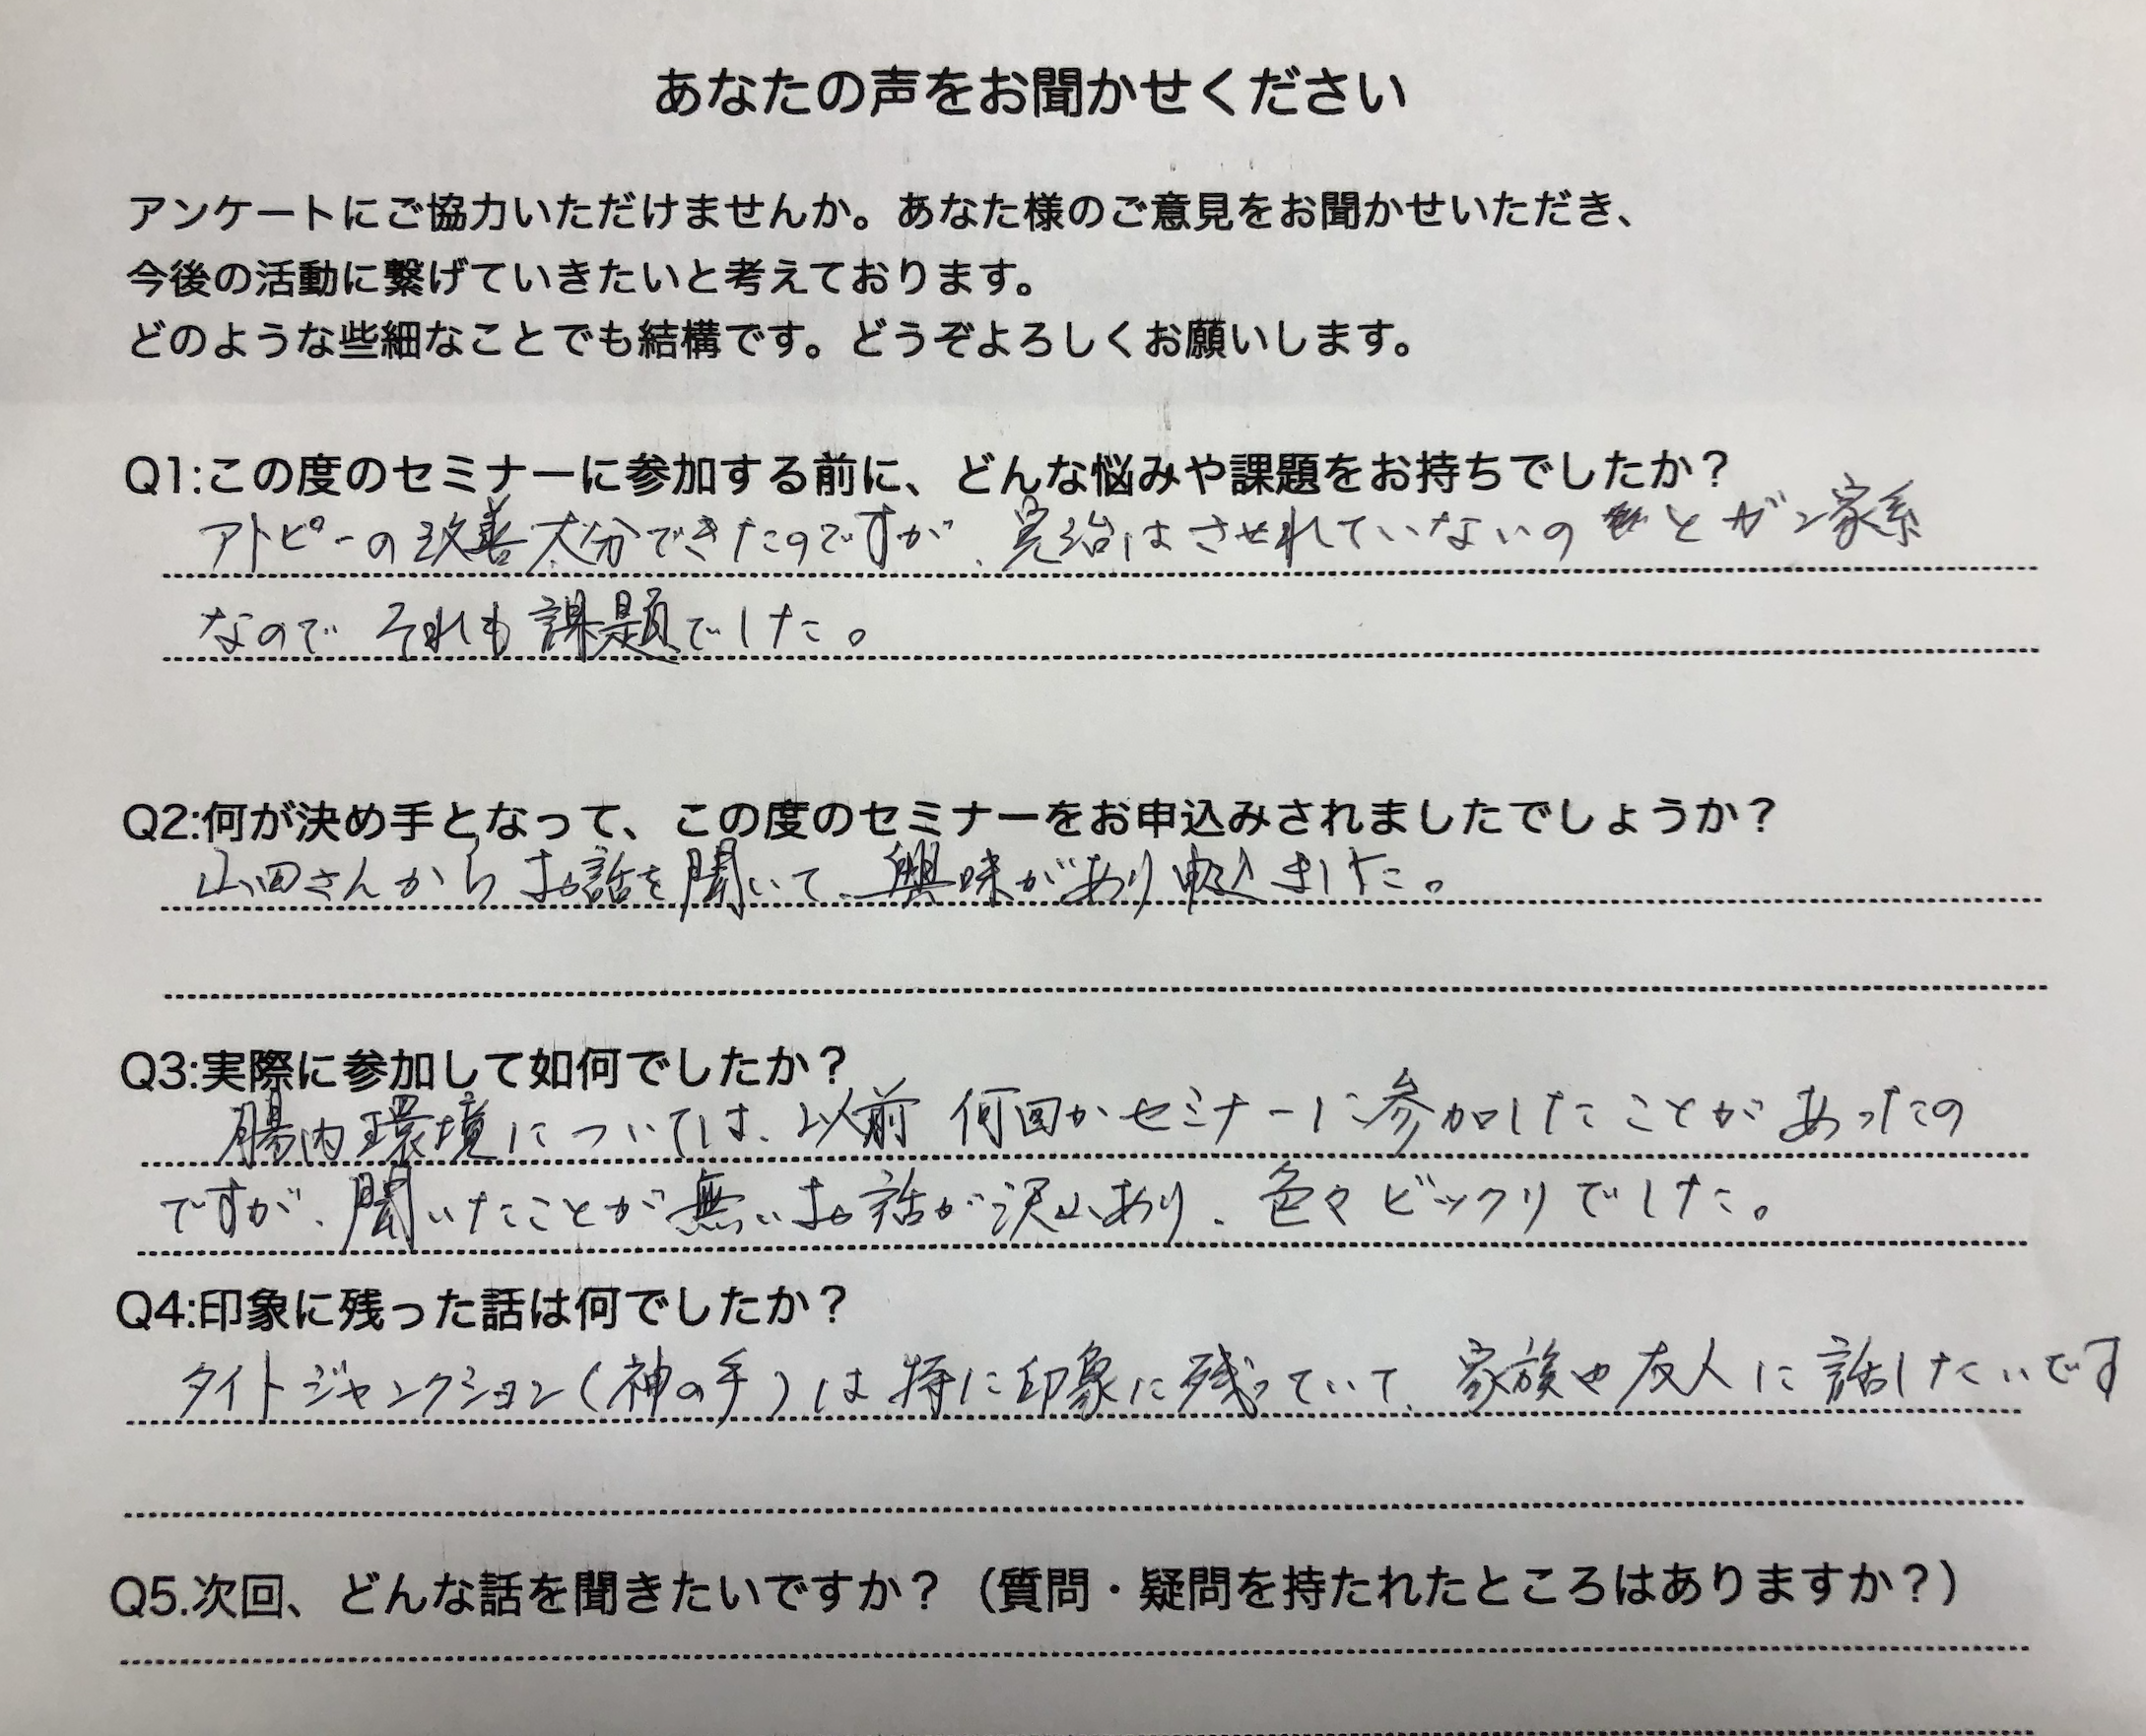 あなたの声をお聞かせください
アンケートにご協力いただけませんか。あなた様のご意見をお聞かせいただき、
今後の活動に繋げていきたいと考えております。
どのような些細なことでも結構です。どうぞよろしくお願いします。
Q1:この度のセミナーに参加する前に、どんな悩みや課題をお持ちでしたか？
アトピーの改善大分できたのですが、完治はさせれていないのとガン家系
なので それも課題でした。
Q2:何が決め手となって、この度のセミナーをお申込みされましたでしょうか？
山田さんからお話を聞いて、興味があり申込ました。
Q3:実際に参加して如何でしたか？
腸内環境については、以前 何回かセミナーに参加したことがあったの
ですが、聞いたことが無いお話が沢山あり、色々ビックリでした。
Q4:印象に残った話は何でしたか？
タイトジャンクション（神の手）は特に印象に残っていて、家族や友人に話したいです
Q5.次回、どんな話を聞きたいですか？（質問・疑問を持たれたところはありますか？）